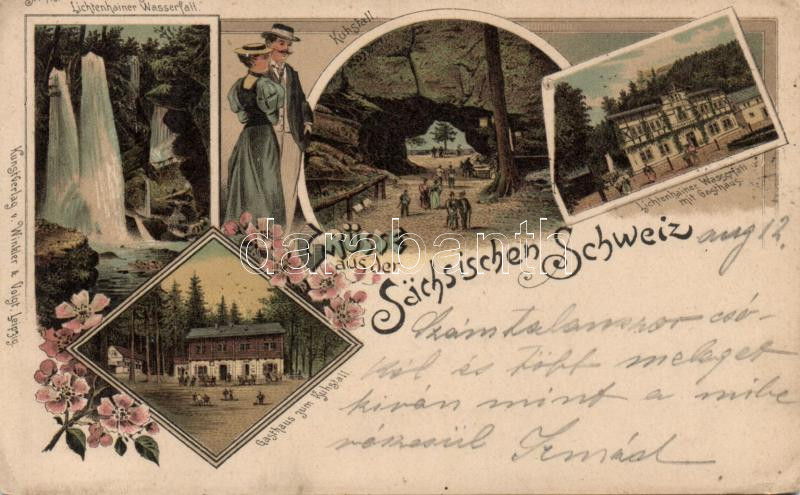 Lichtenhainer Wasserfall.
Kuhstall
Lichtenhainer Wasserfall
mit Gasthaus.
Kunstverlag v. Winkler & Voigt. Leipzig.
Grüsse
aus der
Sächsischen Schweiz
Gasthaus zum Kuhstall
darabanth.com
aug 12.
Számtalanszor csó-
kol és több meleget
kíván mint a mibe
részesül Izmád